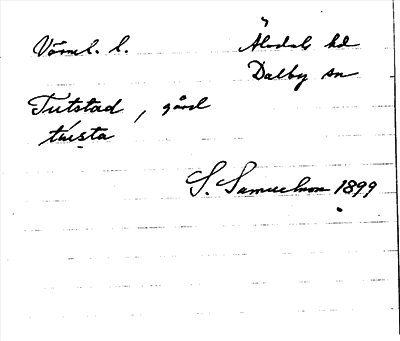 Värml. l.
Älvdals hd
Dalby sn
Tutstad, gård
tùsta
S. Samuelson 1899